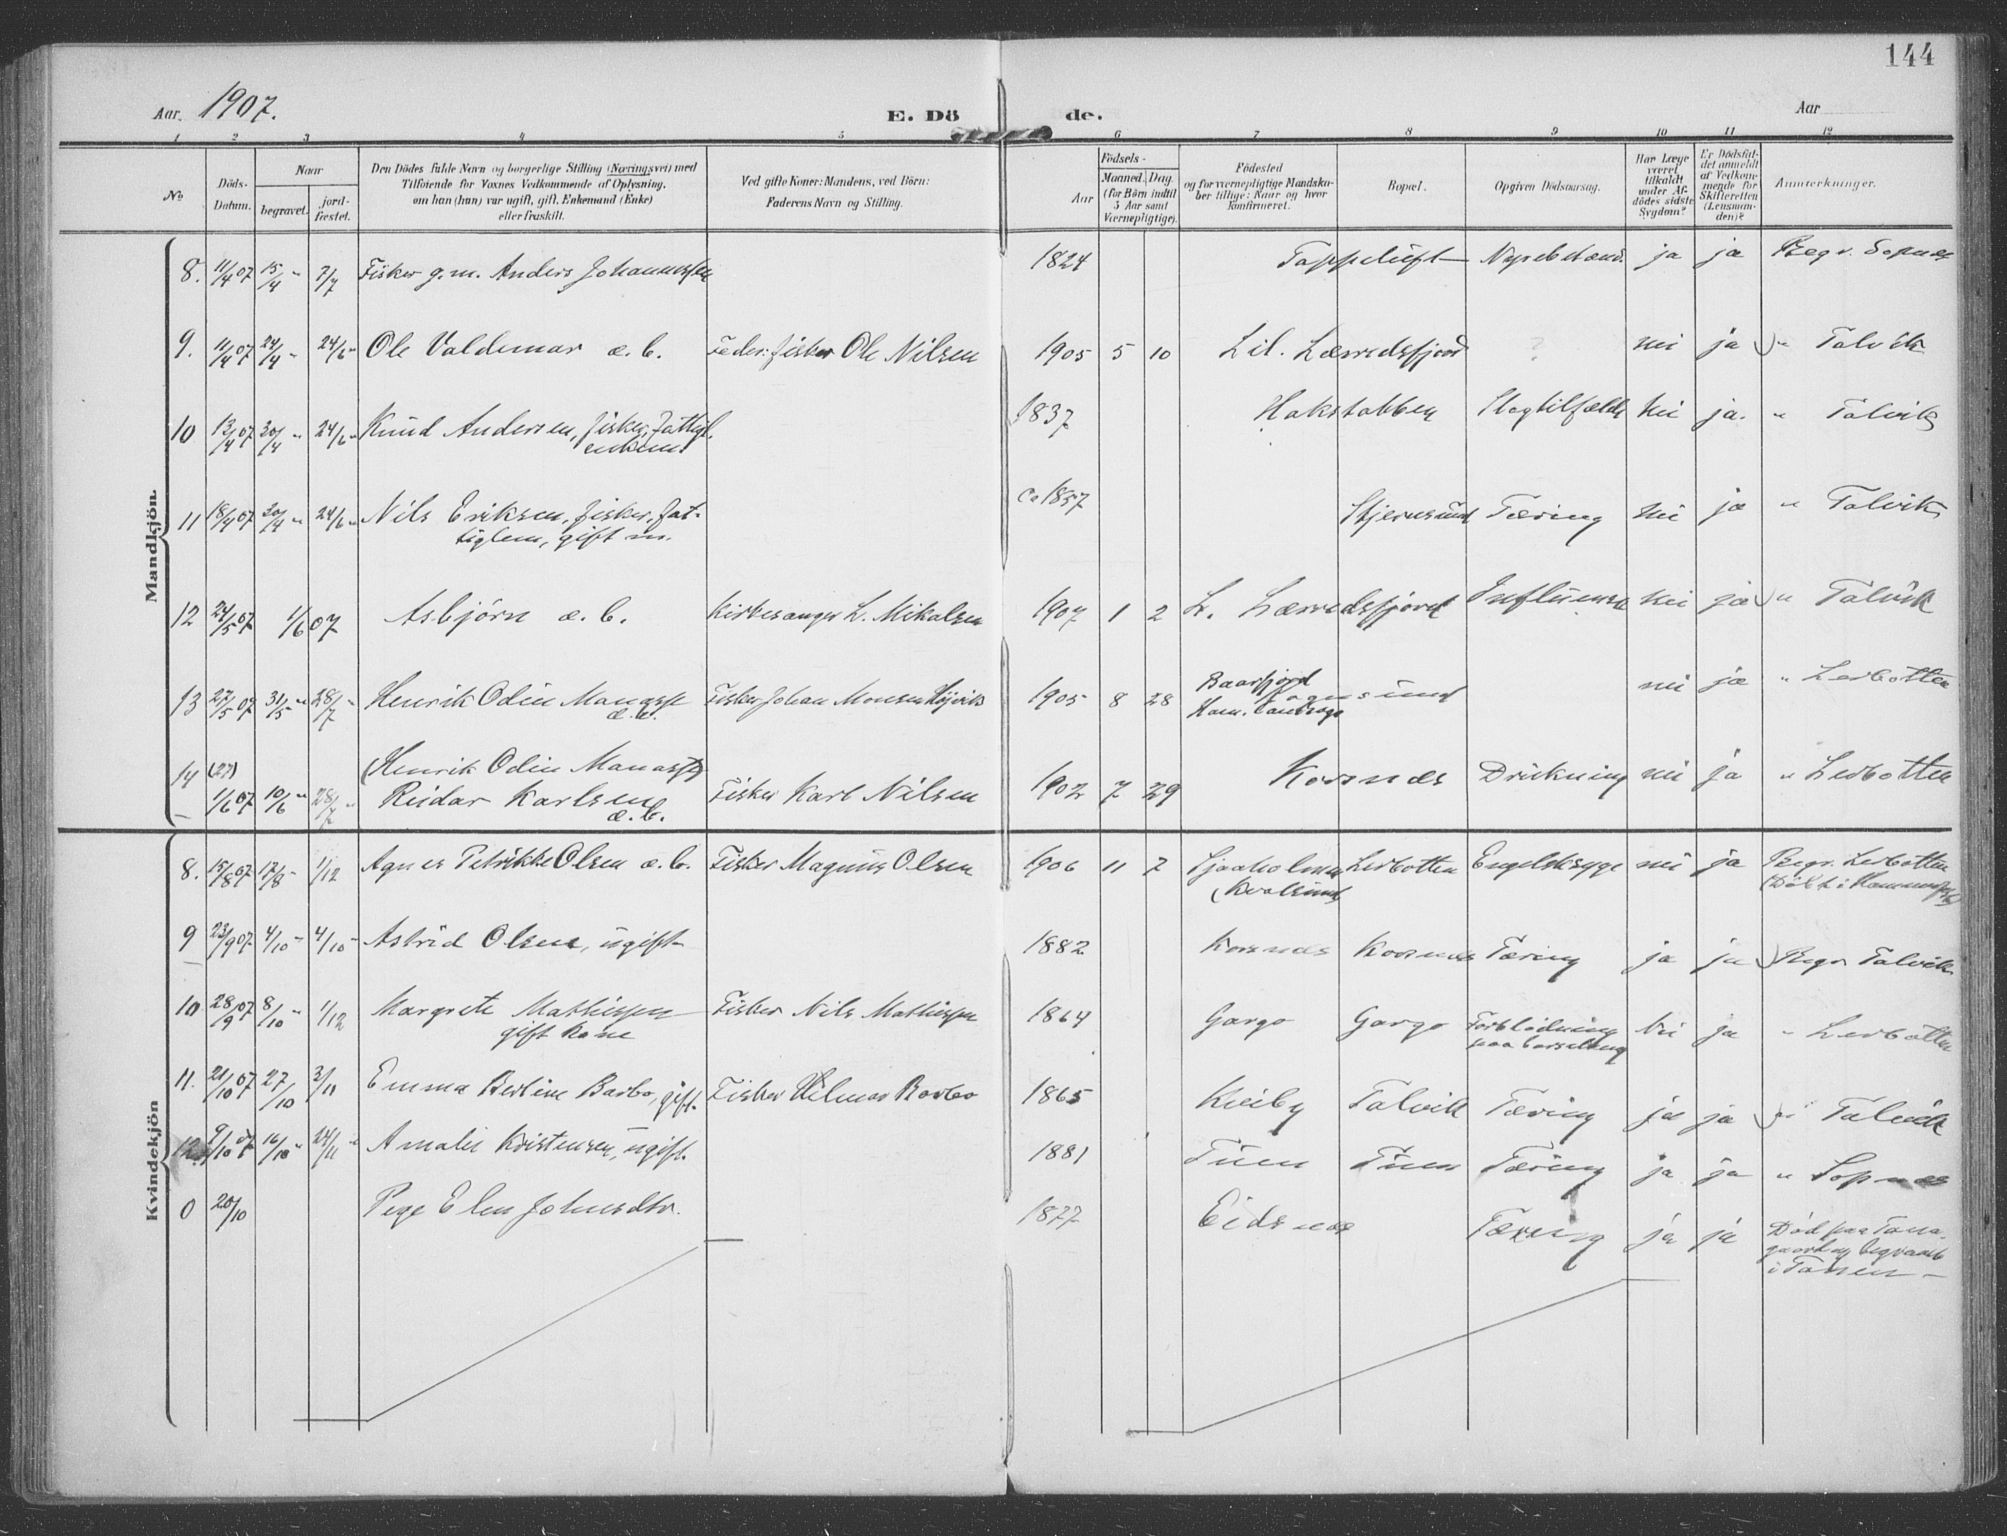 144
Aar 1907.
E. Dö de.
Aar
1 2 3 4 5 6 7 8 9 10 11 12
No
Döds-Datum.
Naar
begravet.
jord-fæstet.
Den Dödes fulde Navn og borgerlige Stilling (Næringsvei) med
Tilföiende for Voxnes Vedkommende af Oplysning,
om han (hun) var ugift, gift, Enkemand (Enke)
eller fraskilt.
Ved gifte Koner: Mandens, ved Börn:
Faderens Navn og Stilling.
Födsels-
Aar
Maaned. Dag.
(for Börn indtil
5 Aar samt
Værnepligtige).
Födested
og for værnepligtige Mandska-
ber tillige: Naar og hvor
konfirmeret.
Bopæl.
Opgiven Dödsaarsag.
Har Læge
været
tilkaldt
under Af-
dödes sidste
Sygdom?
Er Dödsfal-
det anmeldt
af Vedkom-
mende for
Skifteretten
(Lensman-
den)?
Anmærkninger.
Mandkjön.
8. 11/4 07 15/4 " 7/7 Fisker g.m. Anders Johannessen 1824 Tappeluft ja ja Begr. Sopnes
9. 11/4 07 24/4 " 24/6 " Ole Valdemar æ. b. Fader: fisker Ole Nilsen 1905 5 10 Lil. Lærredsfjord ? nei ja " Talvik
10 13/4 07 20/4 " 24/6 " Knud Andersen, fisker, fattigl.
enkem. 1837 Hakstabben Slagtilfælde nei ja. " Talvik
11 18/4 07 20/4 " 24/6 " Nils Eriksen, fisker, fat-
tiglem, gift m. Ca 1837 Stjernsund Tæring nei ja " Talvik
12 24/5 07 1/6 07 Asbjörn æ. b. Kirkesanger L. Mikalsen 1907 1 2 L. Lærredsfjord Influensa nei ja " Talvik
13 27/5 07 31/5 " 28/7 " Henrik Odin Manasse
æ. b. Fisker Johan Monsen 1905 8 28 Baarfjord
Ham. Landsogn Rognsund nei ja " Lerbotten
14 (27) (Henrik Odin
1/6 07 10/6 " 28/7 " Reidar Karlsen
æ. b. Fisker Karl Nilsen 1902 7 29 Korsnæs Drukning nei ja " Lerbotten
Kvindekjön
8. 15/8 07 17/8 " 1/12 Agnes Petrikke Olsen æ. b. Fisker Magnus Olsen 1906 11 7 Sjaaholmen
(Kvalsund) Lerbotten Engelsksyge nei ja Begr. Lerbotten
(Döbt i Hammerfest)
9 23/9 07 4/10 " 4/10 " Astrid Olsen, ugift 1882 Korsnæs Korsnæs Tæring ja ja Begr. Talvik
10 28/9 07 8/10 " 1/12 Margrete Mathissen
gift kone Fisker Nils Mathissen 1864 Gargo Gargo Forblödning
paa barselseng nei ja " Lerbotten
11. 21/10 07 27/10 3/11 Emma Bertine Barbo, gift. Fisker Hilmar Barbo 1865 Kviby Talvik Tæring ja ja " Talvik
12 9/10 07 16/10 " 24/11 " Amalie Kristensen, ugift. 1881 Tuen Tuen Tæring ja ja " Sopnes
0 20/10 Elen Johnsdtr. 1877 Eidsnæs Tæring ja ja Död paa Tana-
gaard og begravet
i Tanen